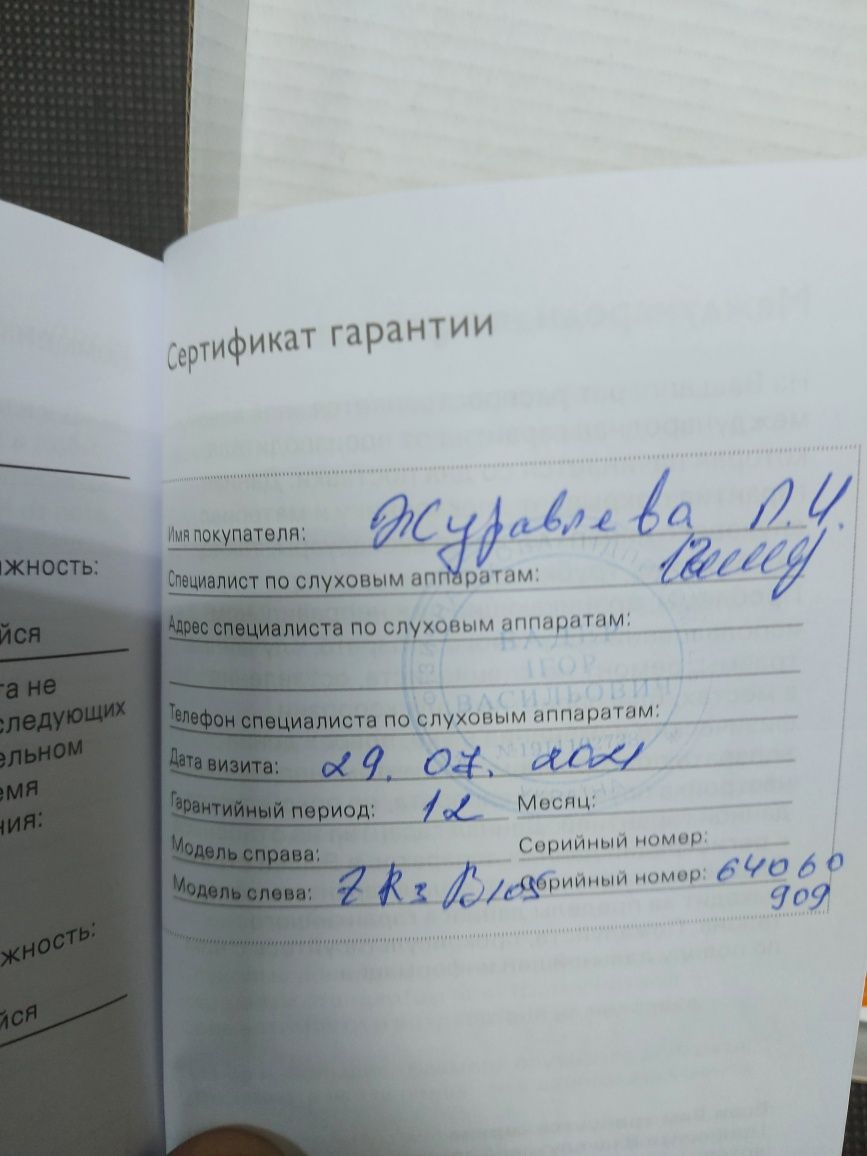 жность:
йся
та не
следующих
ельном
емя
ния:
жность:
йся
Сертификат гарантии
Имя покупателя: Журавлева Л.И.
Специалист по слуховым аппаратам:
Адрес специалиста по слуховым аппаратам:
ІГОР
ВАСИЛЬОВИЧ
Телефон специалиста по слуховым аппаратам:
Дата визита: 29. 07. 2021
Гарантийный период: 12 Месяц:
Модель справа: Серийный номер:
Модель слева: Серийный номер: 64060
909